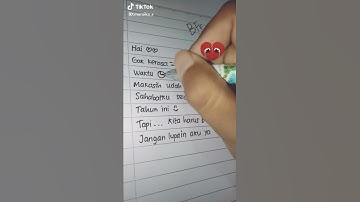 TikTok
BFF
Hai
Gak kerasa =
Waktu
Makasih udah
Sahabatku
Tahun ini
Tapi... Kita harus
Jangan lupain aku ya